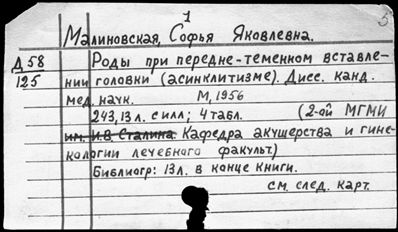 1
5
Малиновская, Софья Яковлевна.
Д 58
125
Роды при передне-теменном вставле-
нии головки (асинклитизме). Дисс. канд.
мед. наук. М, 1956
243,13 л. с илл; 4 табл. (2-ой МГМИ
им. И.В. Сталина. Кафедра акушерства и гине-
кологии лечебного факульт.)
Библиогр: 13л. в конце книги.
см. след. карт.